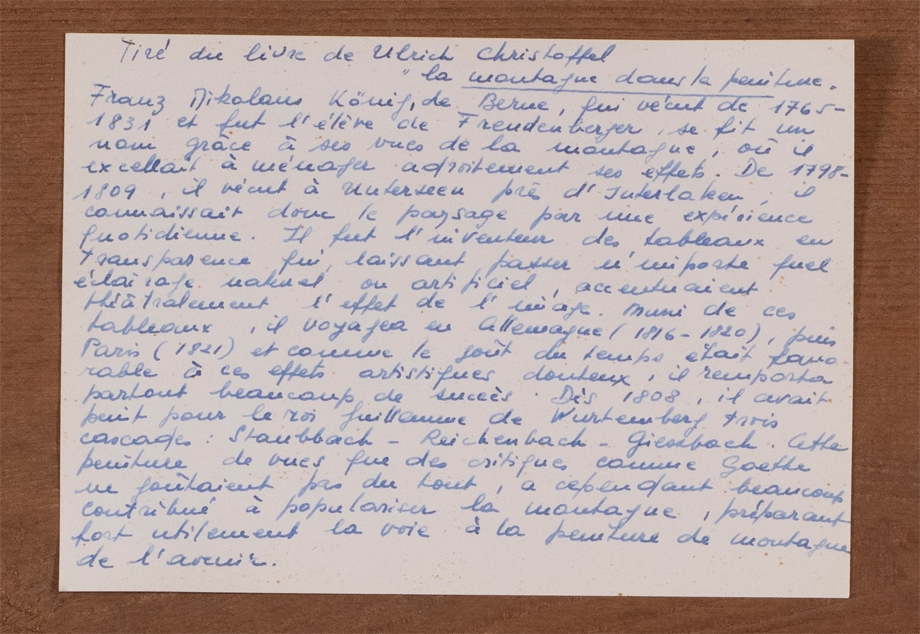 Tiré du livre de Ulrich Christoffel
"la montagne dans la peinture.
Franz Nikolaus König, de Berne, qui vécut de 1765-
1831 et fut l'élève de Freudenberger, se fit un
nom grâce à ses vues de la montagne, où il
excellait à ménager adroitement ses effets. De 1798-
1809, il vécut à Unterseen près d'Interlaken, il
connaissait donc le paysage par une expérience
quotidienne. Il fut l'inventeur des tableaux en
transparence qui, laissant passer n'importe quel
éclairage naturel ou artificiel, accentuaient
théâtralement l'effet de l'image. Muni de ces
tableaux, il voyagea en Allemagne (1816-1820), puis
Paris (1821) et comme le goût du temps était favo-
rable à ces effets artistiques douteux, il remporta
partout beaucoup de succès. Dès 1808, il avait
peint pour le roi Guillaume de Wurtemberg trois
cascades: Staubbach - Reichenbach - Giessbach. Cette
peinture de vues que des critiques comme Goethe
ne goûtaient pas du tout, a cependant beaucoup
contribué à populariser la montagne, préparant
fort utilement la voie à la peinture de montagne
de l'avenir.